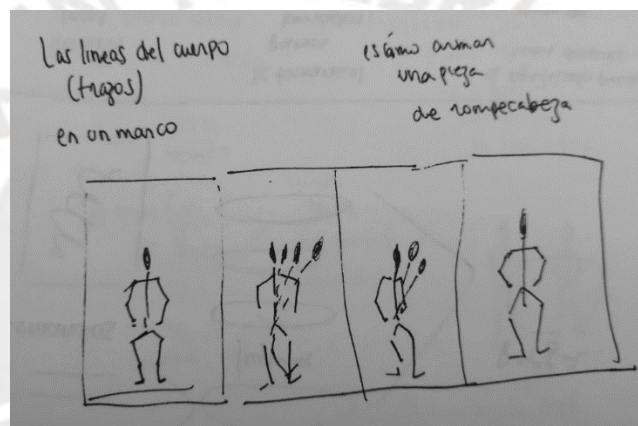 Las lineas del cuerpo
(trazos)
en un marco
es cómo armar
una pieza
de rompecabeza